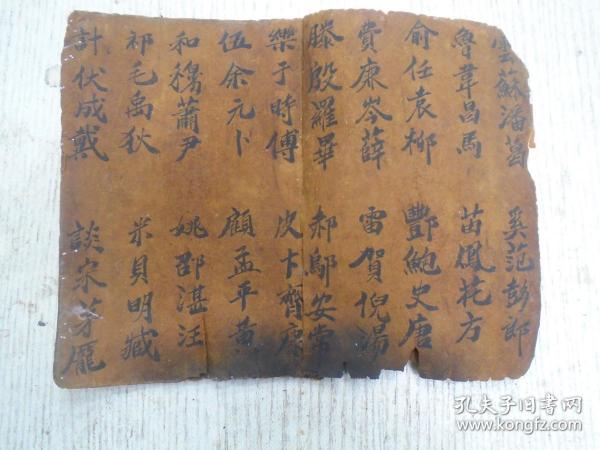 雲蘇潘葛 奚范彭郎
魯韋昌馬 苗鳳花方
俞任袁柳 酆鮑史唐
費廉岑薛 雷賀倪湯
滕殷羅畢 郝鄔安常
樂于時傅 皮卞齊康
伍余元卜 顧孟平黃
和穆蕭尹 姚邵湛汪
祁毛禹狄 米貝明臧
計伏成戴 談宋茅龐
孔夫子旧书网
www.kongfz.com